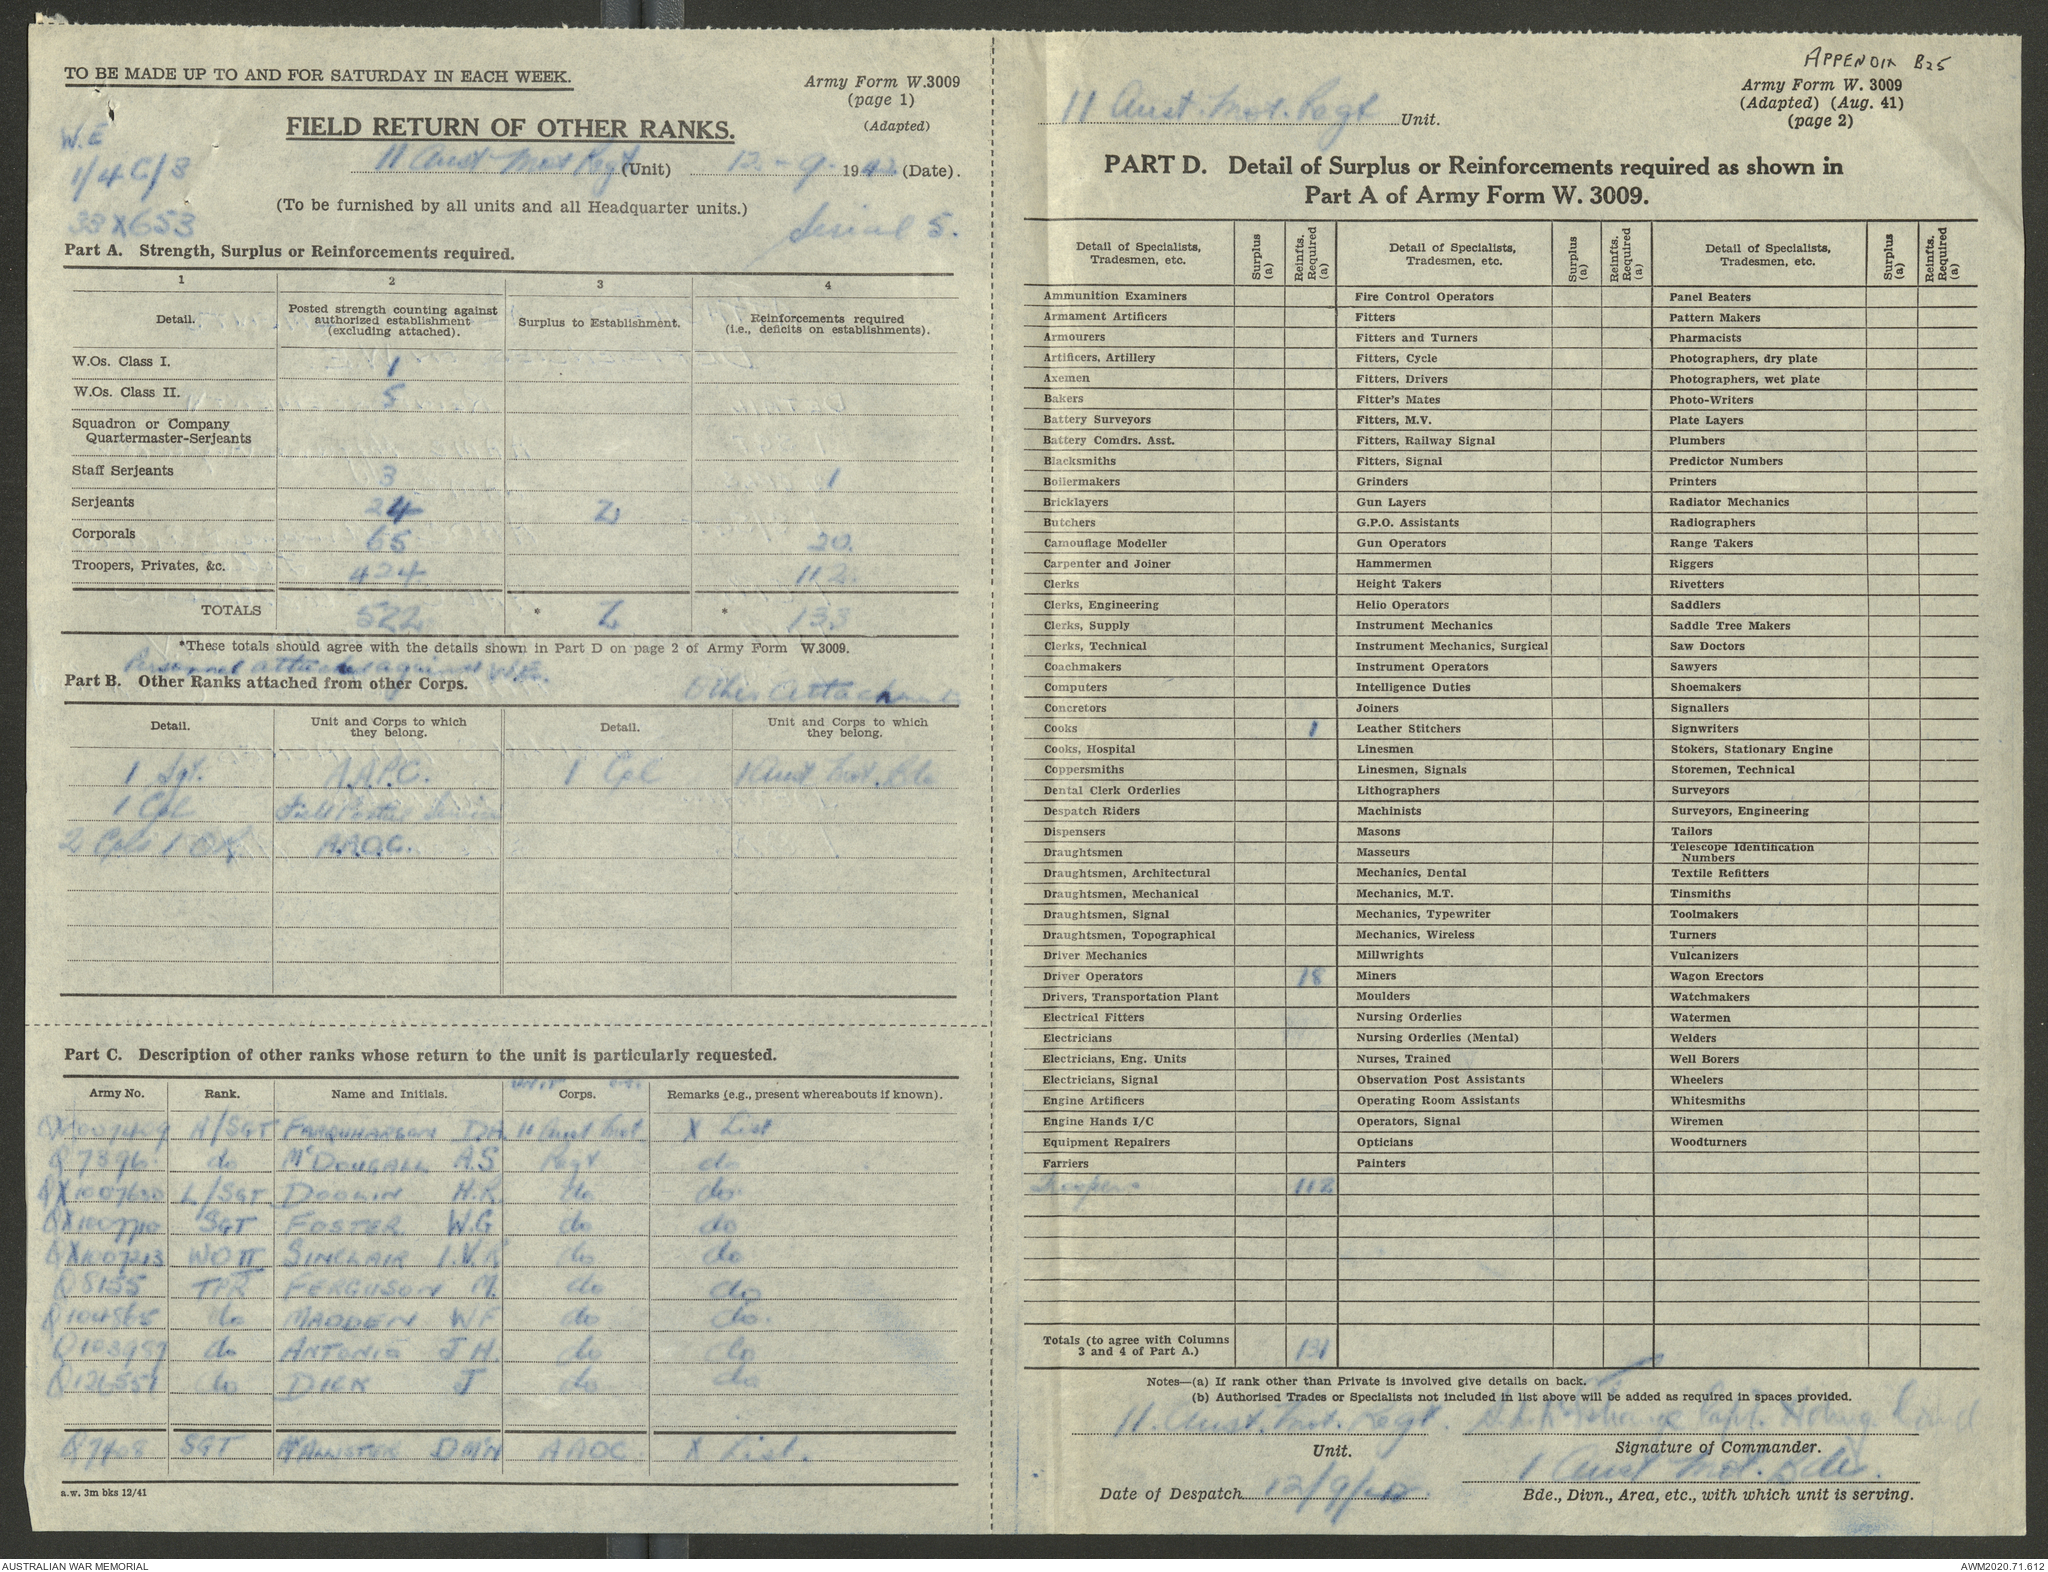 TO BE MADE UP TO AND FOR SATURDAY IN EACH WEEK.
Army Form W.3009
(page 1)
(Adapted)
FIELD RETURN OF OTHER RANKS.
W.E
1/4C/3
33X653
11 Aust Mot Regt (Unit) 12 - 9 - 1942 (Date).
(To be furnished by all units and all Headquarter units.)
Serial 5.
Part A. Strength, Surplus or Reinforcements required.
1 2 3 4
Detail. Posted strength counting against authorized establishment (excluding attached). Surplus to Establishment. Reinforcements required (i.e., deficits on establishments).
W.Os. Class I. 1
W.Os. Class II. 5
Squadron or Company
Quartermaster-Serjeants
Staff Serjeants 3 1
Serjeants 24 2
Corporals 65 20.
Troopers, Privates, &c. 424 112.
TOTALS 522 * 2 * 133
*These totals should agree with the details shown in Part D on page 2 of Army Form W.3009.
Personnel attached against W.E.
Part B. Other Ranks attached from other Corps.
Other Attachments
Detail. Unit and Corps to which they belong. Detail. Unit and Corps to which they belong.
1 Sgt. A.A.P.C. 1 Cpl 1 Aust Mot. Bde
1 Cpl Field Postal Service
2 Cpls 1 A.A.O.C.
Part C. Description of other ranks whose return to the unit is particularly requested.
Army No. Rank. Name and Initials. Corps. Remarks (e.g., present whereabouts if known).
A/SGT FARQUHARSON D.A. 11 Aust Mot X List
Q7396 do McDOUGALL A.S Regt do
L/SGT H.R do do
SGT FOSTER W.G do do
QX1007213 WO II SINCLAIR I.V.R do do
Q8155 TPR FERGUSON M. do do
Q104865 do MADDEN W F do do.
Q103987 do ANTONIO J H. do do
Q126551 do DICK J do do
Q7408 SGT McALLISTER AAOC X List.
a.w. 3m bks 12/41
APPENDIX B25
Army Form W. 3009
(Adapted) (Aug. 41)
(page 2)
11 Aust. Mot. Regt Unit.
PART D. Detail of Surplus or Reinforcements required as shown in
Part A of Army Form W. 3009.
Detail of Specialists, Tradesmen, etc. Surplus (a) Reinfts. Required (a) Detail of Specialists, Tradesmen, etc. Surplus (a) Reinfts. Required (a) Detail of Specialists, Tradesmen, etc. Surplus (a) Reinfts. Required (a)
Ammunition Examiners Fire Control Operators Panel Beaters
Armament Artificers Fitters Pattern Makers
Armourers Fitters and Turners Pharmacists
Artificers, Artillery Fitters, Cycle Photographers, dry plate
Axemen Fitters, Drivers Photographers, wet plate
Bakers Fitter's Mates Photo-Writers
Battery Surveyors Fitters, M.V. Plate Layers
Battery Comdrs. Asst. Fitters, Railway Signal Plumbers
Blacksmiths Fitters, Signal Predictor Numbers
Boilermakers Grinders Printers
Bricklayers Gun Layers Radiator Mechanics
Butchers G.P.O. Assistants Radiographers
Camouflage Modeller Gun Operators Range Takers
Carpenter and Joiner Hammermen Riggers
Clerks Height Takers Rivetters
Clerks, Engineering Helio Operators Saddlers
Clerks, Supply Instrument Mechanics Saddle Tree Makers
Clerks, Technical Instrument Mechanics, Surgical Saw Doctors
Coachmakers Instrument Operators Sawyers
Computers Intelligence Duties Shoemakers
Concretors Joiners Signallers
Cooks 1 Leather Stitchers Signwriters
Cooks, Hospital Linesmen Stokers, Stationary Engine
Coppersmiths Linesmen, Signals Storemen, Technical
Dental Clerk Orderlies Lithographers Surveyors
Despatch Riders Machinists Surveyors, Engineering
Dispensers Masons Tailors
Draughtsmen Masseurs Telescope Identification Numbers
Draughtsmen, Architectural Mechanics, Dental Textile Refitters
Draughtsmen, Mechanical Mechanics, M.T. Tinsmiths
Draughtsmen, Signal Mechanics, Typewriter Toolmakers
Draughtsmen, Topographical Mechanics, Wireless Turners
Driver Mechanics Millwrights Vulcanizers
Driver Operators 18 Miners Wagon Erectors
Drivers, Transportation Plant Moulders Watchmakers
Electrical Fitters Nursing Orderlies Watermen
Electricians Nursing Orderlies (Mental) Welders
Electricians, Eng. Units Nurses, Trained Well Borers
Electricians, Signal Observation Post Assistants Wheelers
Engine Artificers Operating Room Assistants Whitesmiths
Engine Hands I/C Operators, Signal Wiremen
Equipment Repairers Opticians Woodturners
Farriers Painters
Troopers 112
Totals (to agree with Columns 3 and 4 of Part A.) 131
Notes—(a) If rank other than Private is involved give details on back.
(b) Authorised Trades or Specialists not included in list above will be added as required in spaces provided.
11. Aust. Mot. Regt. Capt.
Unit. Signature of Commander.
1 Aust Mot. Bde.
Date of Despatch 12/9/42. Bde., Divn., Area, etc., with which unit is serving.
AUSTRALIAN WAR MEMORIAL AWM2020.71.612